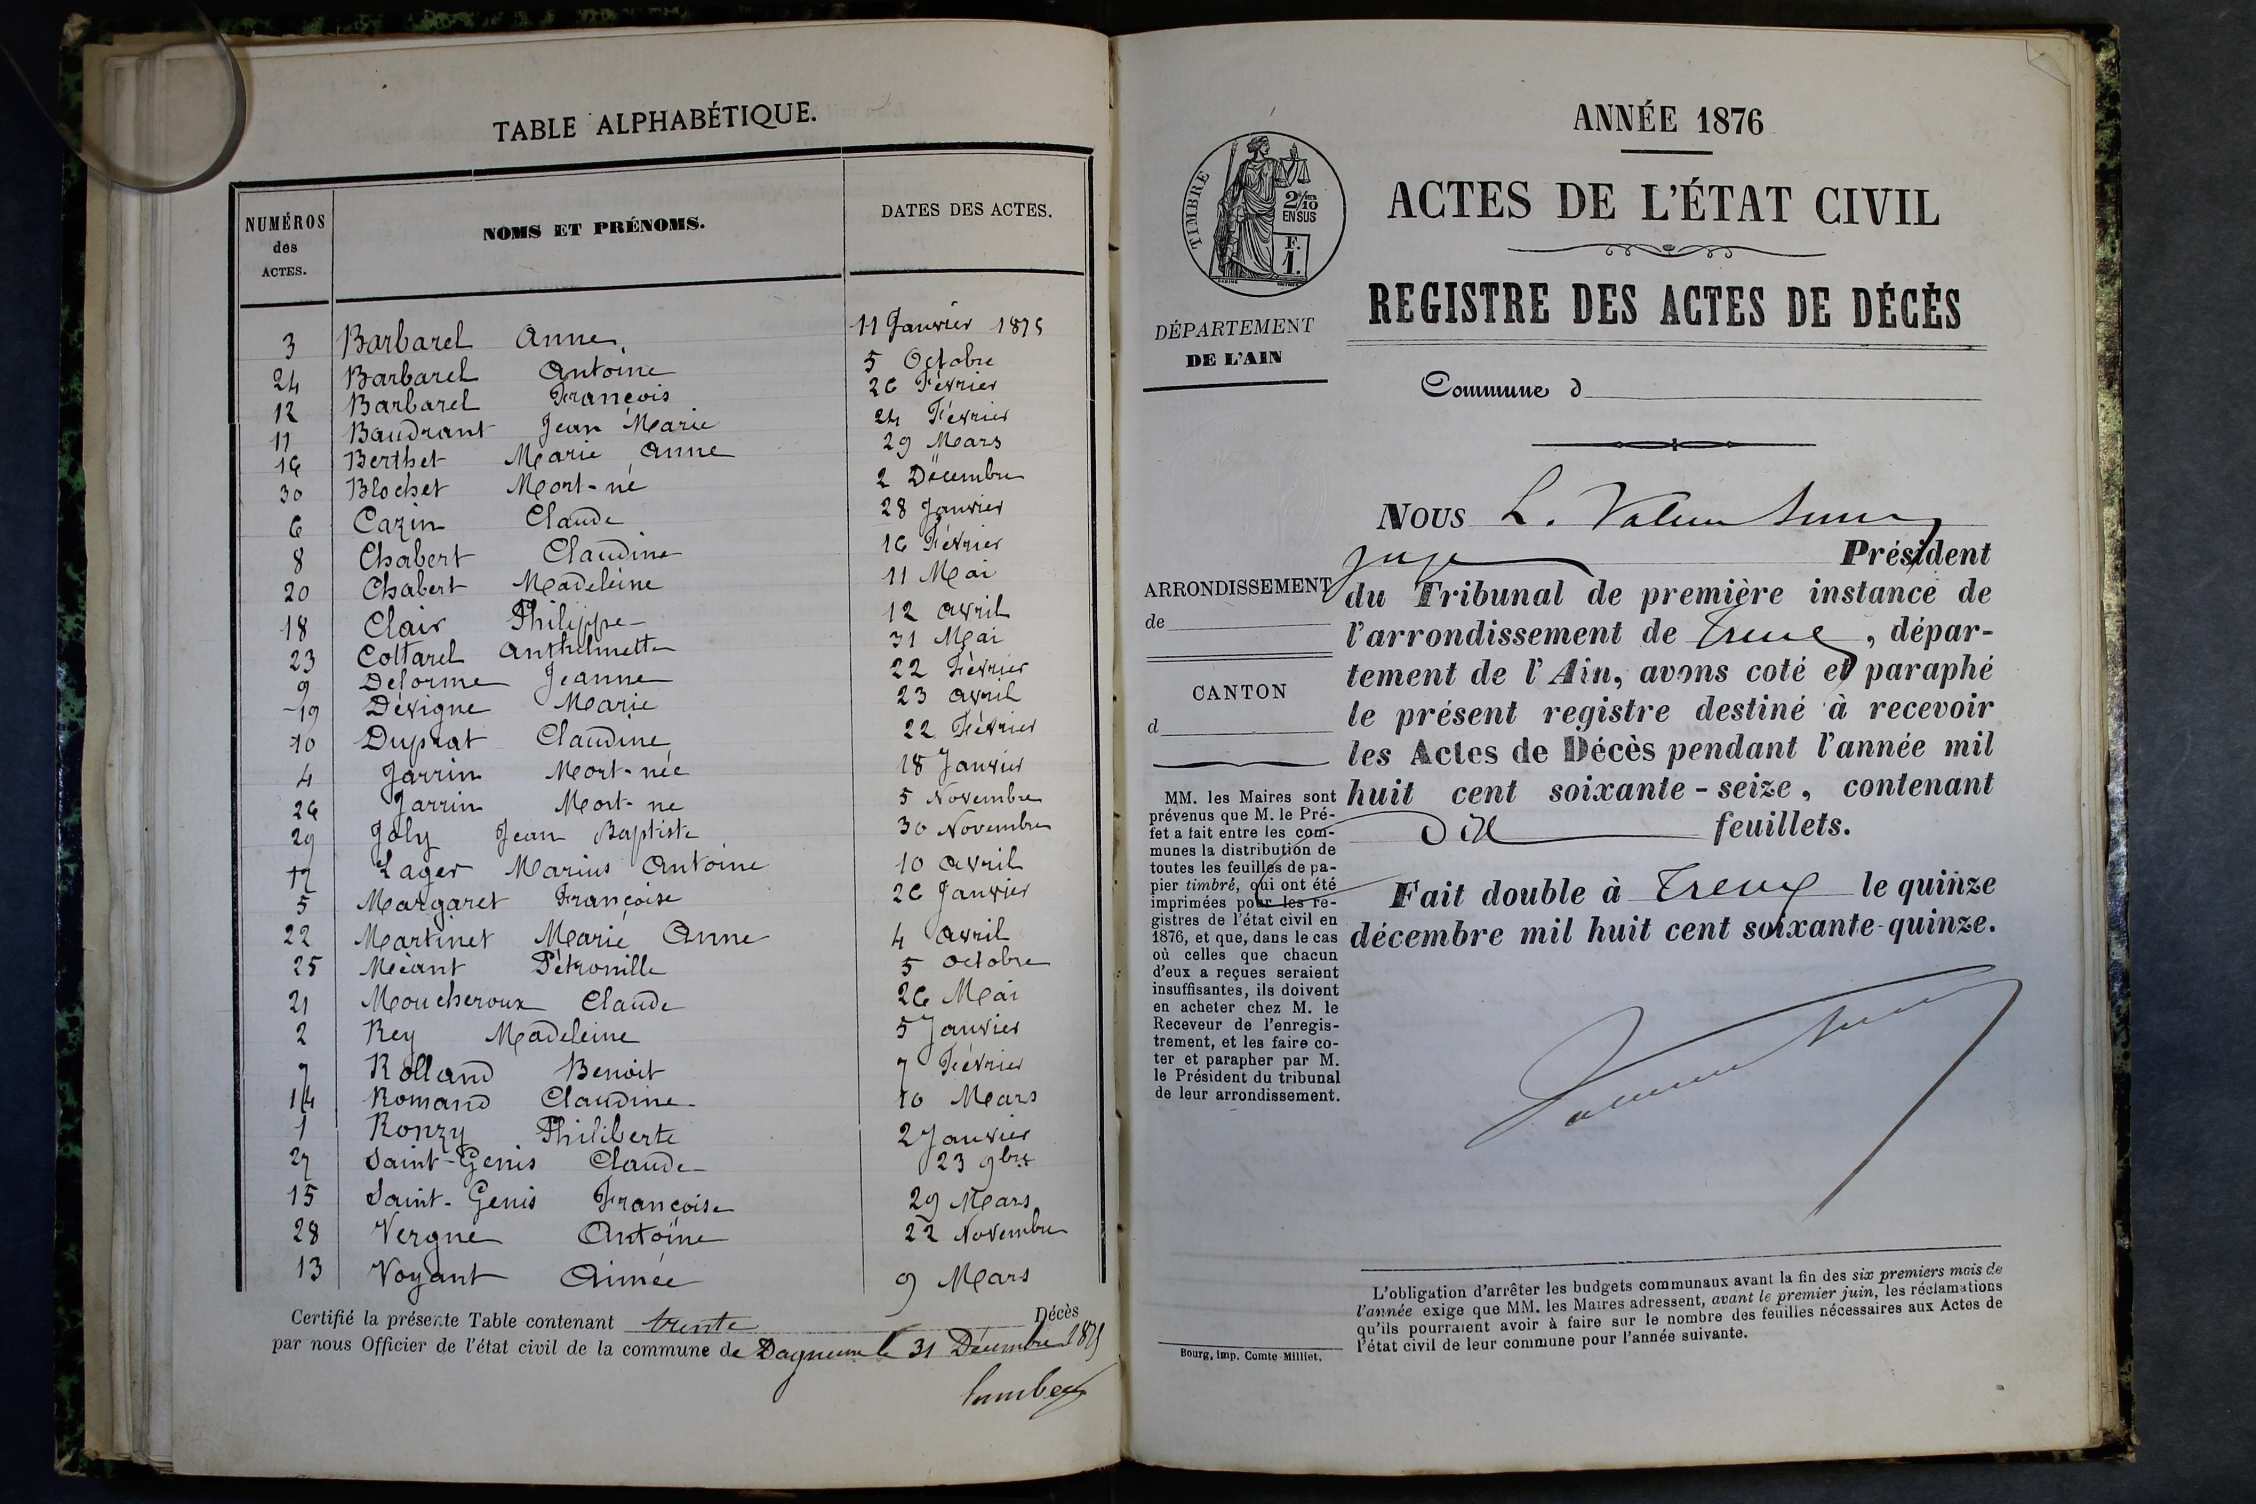 TABLE ALPHABÉTIQUE.
NUMÉROS des ACTES.
NOMS ET PRÉNOMS.
DATES DES ACTES.
3 Barbarel Anne 11 Janvier 1875
24 Barbarel Antoine 5 Octobre
12 Barbarel François 26 Février
11 Baudrant Jean Marie 24 Février
16 Berthet Marie Anne 29 Mars
30 Blochet Mort-né 2 Décembre
6 Cazin Claude 28 Janvier
8 Chabert Claudine 16 Février
20 Chabert Madeleine 11 Mai
18 Clair Philippe 12 avril
23 Cottarel Anthelmette 31 Mai
9 Delorme Jeanne 22 Février
19 Dévigne Marie 23 avril
10 Duprat Claudine 22 Février
4 Jarrin Mort-née 18 Janvier
26 Jarrin Mort-né 5 Novembre
29 Joly Jean Baptiste 30 Novembre
17 Lager Marius Antoine 10 avril
5 Margaret Françoise 26 Janvier
22 Martinet Marie Anne 4 avril
25 Méant Pétronille 5 octobre
21 Moucheroux Claude 26 Mai
2 Rey Madeleine 5 Janvier
7 Rolland Benoit 7 Février
14 Romand Claudine 10 Mars
1 Ronzy Philiberte 2 Janvier
27 Saint-Genis Claude 23 9bre
15 Saint-Genis Françoise 29 Mars
28 Vergne Antoine 22 Novembre
13 Voyant Aimée 9 Mars
Certifié la présente Table contenant trente Décès
par nous Officier de l'état civil de la commune de Dagneux le 31 Décembre 1875
ANNÉE 1876
ACTES DE L'ÉTAT CIVIL
REGISTRE DES ACTES DE DÉCÈS
TIMBRE
2/10
EN SUS
F.
1.
DÉPARTEMENT
DE L'AIN
Commune d
NOUS L.
juge Président
du Tribunal de première instance de
l'arrondissement de Trévoux, dépar-
tement de l'Ain, avons coté et paraphé
le présent registre destiné à recevoir
les Actes de Décès pendant l'année mil
huit cent soixante-seize, contenant
dix feuillets.
Fait double à Trévoux le quinze
décembre mil huit cent soixante-quinze.
ARRONDISSEMENT
de
CANTON
d
MM. les Maires sont
prévenus que M. le Pré-
fet a fait entre les com-
munes la distribution de
toutes les feuilles de pa-
pier timbré, qui ont été
imprimées pour les re-
gistres de l'état civil en
1876, et que, dans le cas
où celles que chacun
d'eux a reçues seraient
insuffisantes, ils doivent
en acheter chez M. le
Receveur de l'enregis-
trement, et les faire co-
ter et parapher par M.
le Président du tribunal
de leur arrondissement.
Bourg, imp. Comte-Milliet.
L'obligation d'arrêter les budgets communaux avant la fin des six premiers mois de
l'année exige que MM. les Maires adressent, avant le premier juin, les réclamations
qu'ils pourraient avoir à faire sur le nombre des feuilles nécessaires aux Actes de
l'état civil de leur commune pour l'année suivante.